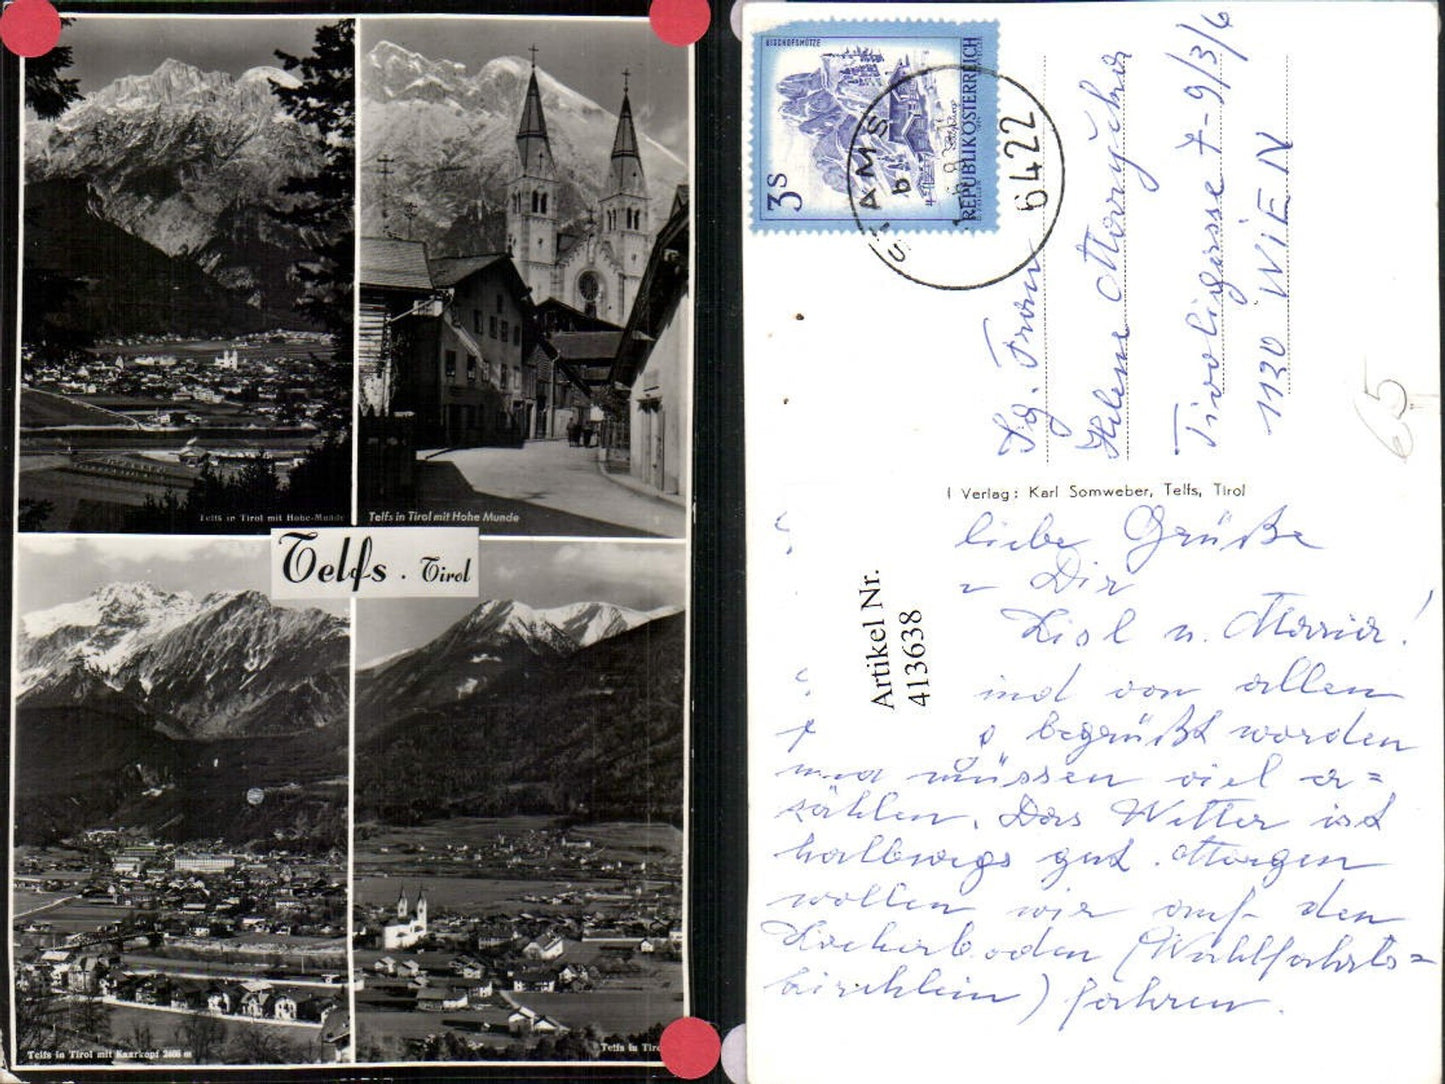 Telfs in Tirol mit Hohe-Munde
Telfs in Tirol mit Hohe Munde
Telfs . Tirol
Telfs in Tirol mit Kaarkopf
Telfs in Tiro
BISCHOFSMÜTZE
3S
REPUBLIK ÖSTERREICH
STAMS
b
6422
Sg. Frau
Helene
Tivoligasse 7-9/3/6
1120 WIEN
65
I Verlag: Karl Somweber, Telfs, Tirol
Artikel Nr.
413638
liebe Grüße
Dir
Lisl u. Maria!
ind von allen
begrüßt worden
müssen viel er=
zählen. Das Wetter ist
halbwegs gut. Morgen
wollen wir auf den
Locherboden (Wahlfahrts=
kirchlein) fahren.